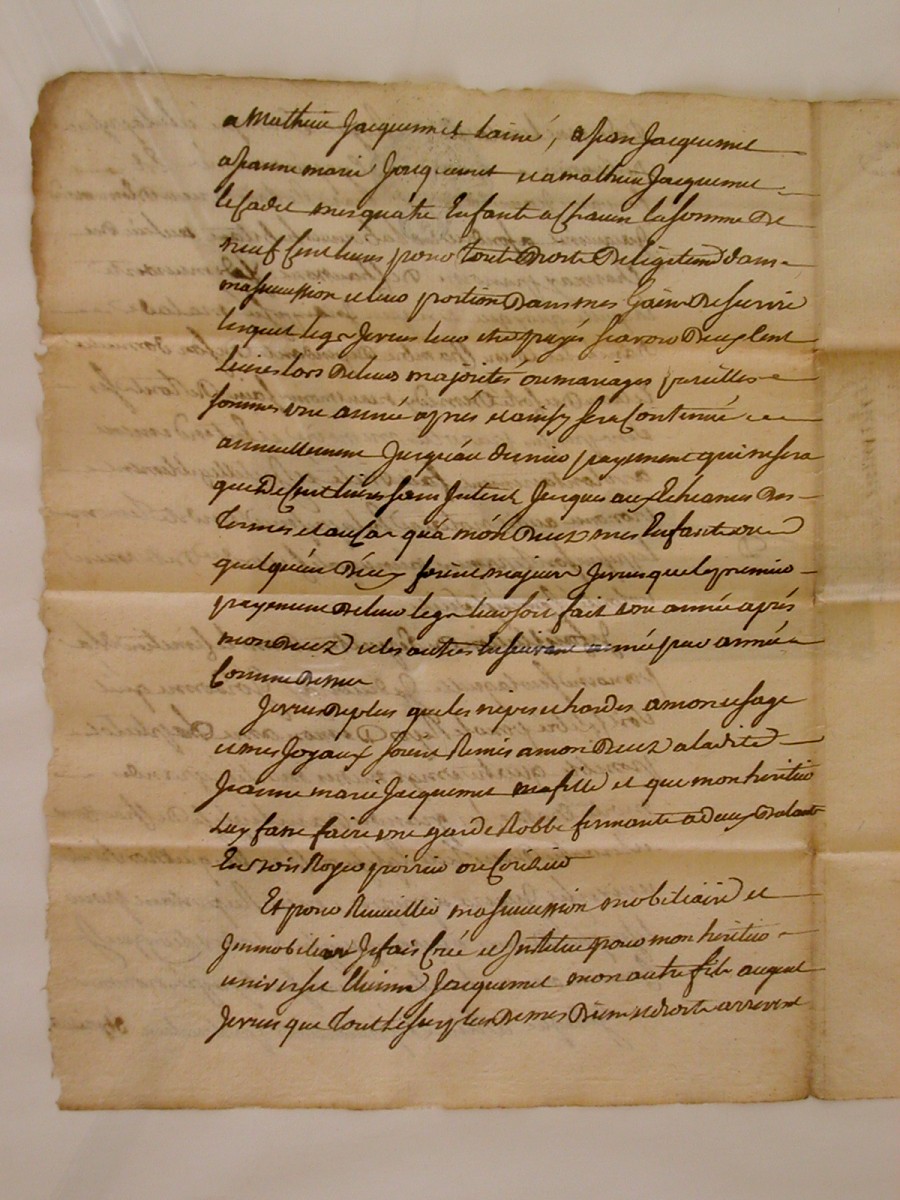 a Mathieu Jacquemet lainé, a jean Jacquemet
a jeanne marie Jacquemet et a mathieu Jacquemet
le cadet mes quatre Enfants a Chacun la somme De
neuf Cent livres pour tout Droits De legitime dans
ma succession et leur portion Dans mes Gains De survie
lesquels legs Je veux leur etre payés scavoir Deux Cent
livres lors De leurs majorités ou mariages pareilles
sommes une année aprés et ainsy sera Continué
annuellement Jusquau dernier payement qui ne sera
que De Cent livres sans Interet Jusques aux Echeances Des
termes et au Cas qua mon Decez mes Enfants ou
quelquun D'eux soient majeurs Je veux que le premier
payement De leur legs leur soit fait une année aprés
mon Decez et les autres En suivant année par année
Comme Dessus
Je veux De plus que les nipes et hardes a mon usage
et mes Joyaux soient Remis a mon Decez a ladite
Jeanne marie Jacquemet ma fille et que mon heritier
luy fasse faire une garde Robbe fermante a deux Batants
En bois Noyer poirier ou Cerisier
Et pour Recueillir ma succession mobiliaire et
Immobiliaire Je fais Créé et Institue pour mon heritier
universel Jacquemet mon autre fils auquel
Je veux que tout le surplus De mes Biens et droits arrivent